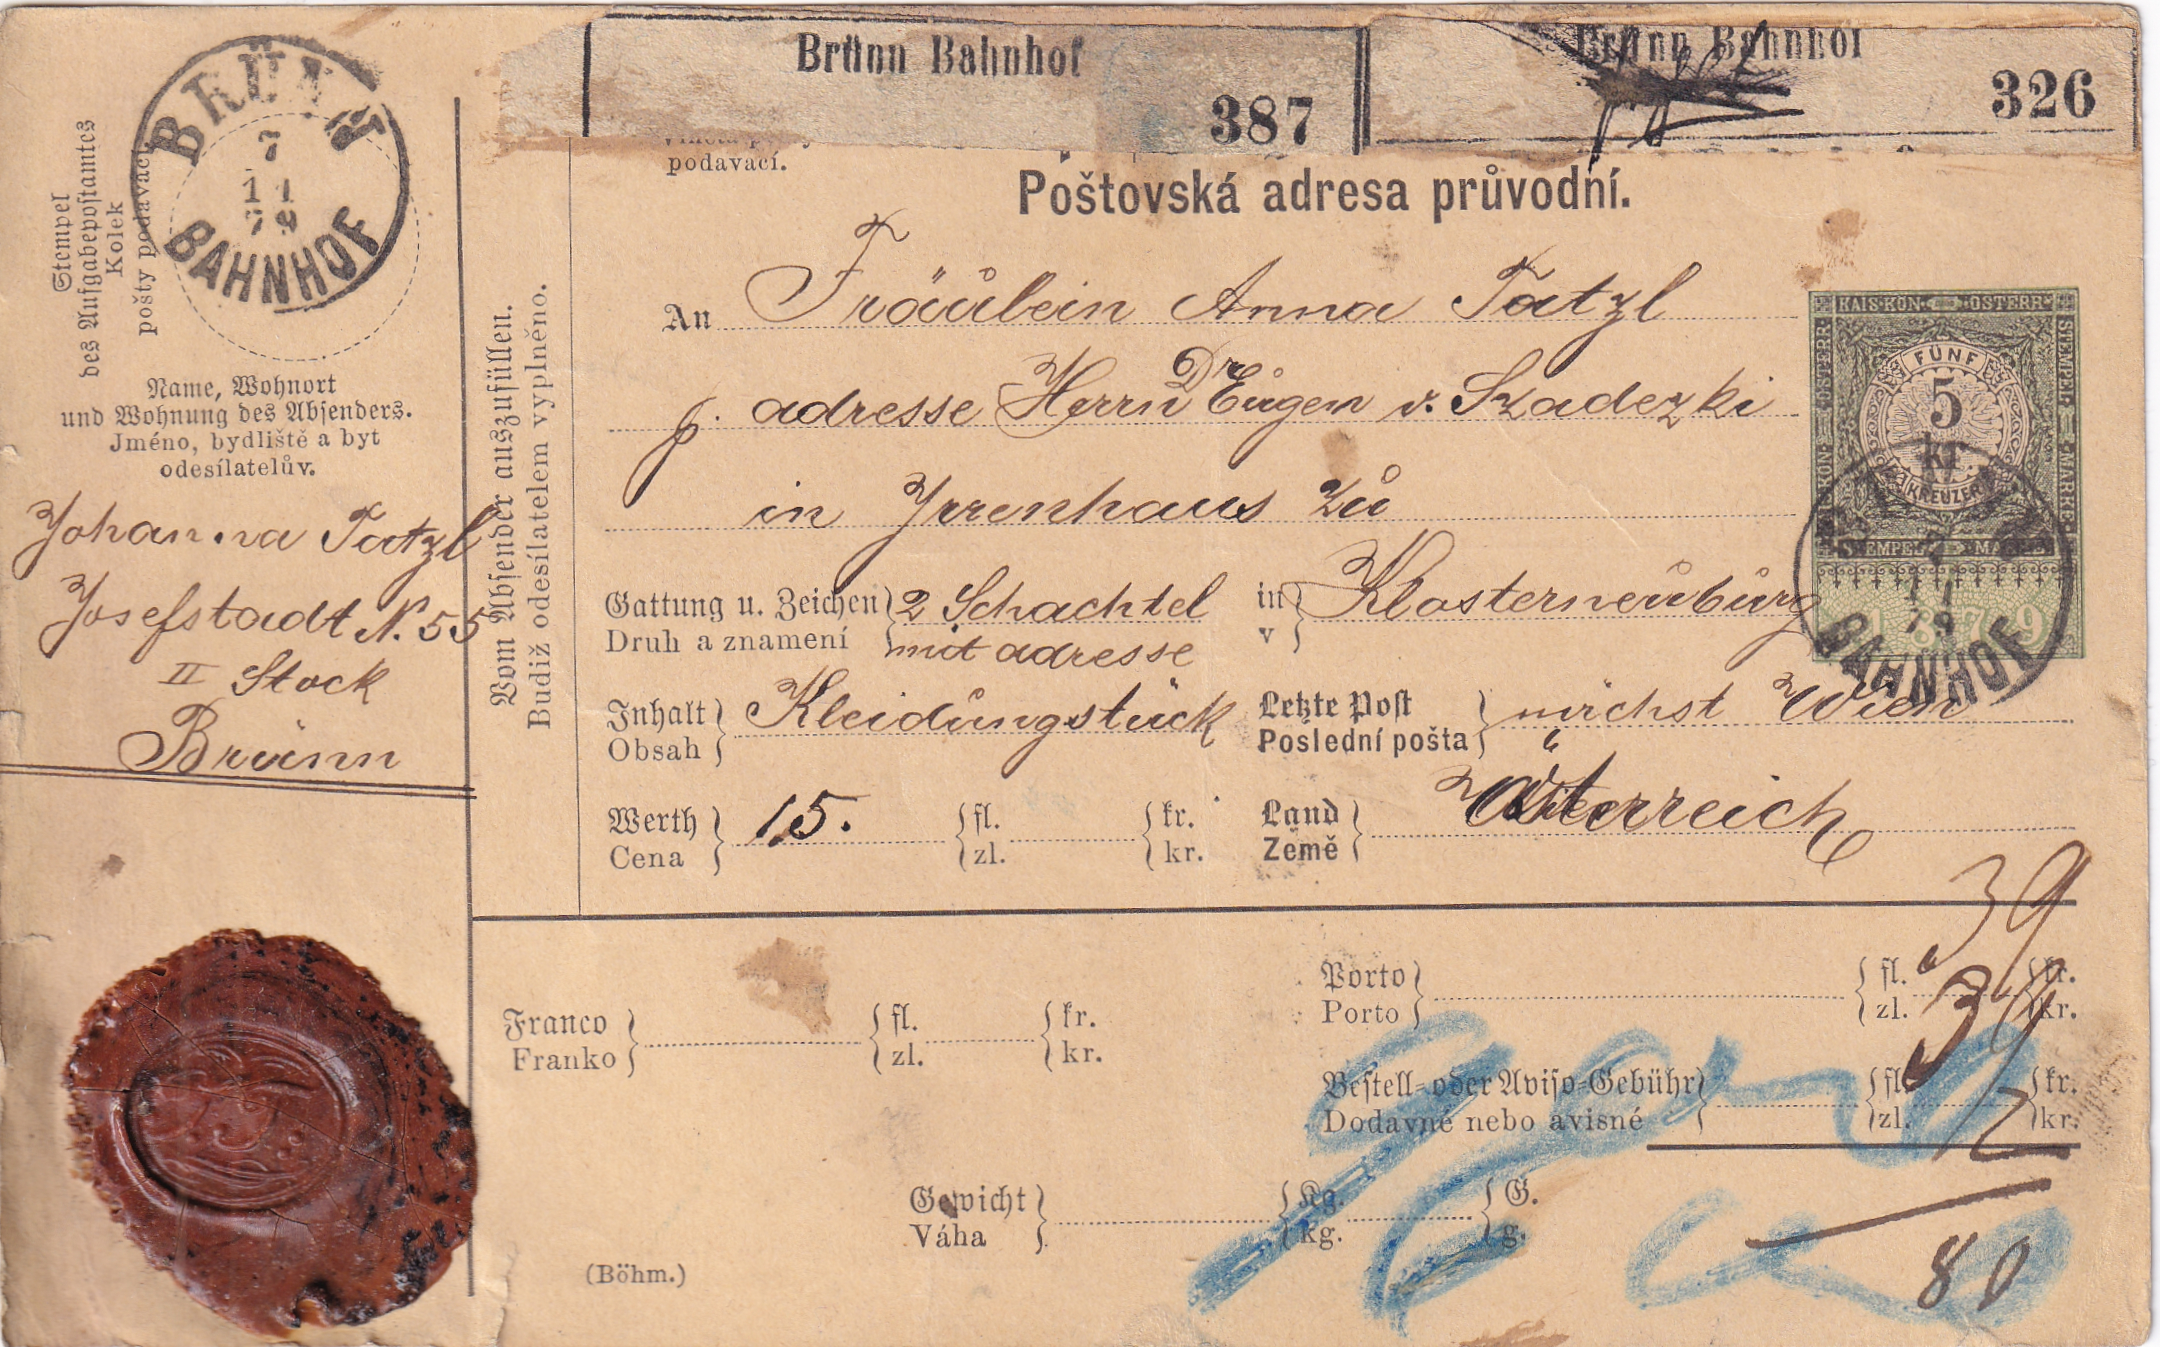 Brünn Bahnhof
387
Brünn Bahnhof
326
podavací.
Poštovská adresa průvodní.
BRÜNN
7
11
79
BAHNHOF
Stempel
des Aufgabepostamtes
Kolek
pošty podávací
Name, Wohnort
und Wohnung des Absenders.
Jméno, bydliště a byt
odesílatelův.
Johanna Tatzl
Josefstadt N. 55
II Stock
Brünn
Vom Absender auszufüllen.
Budiž odesílatelem vyplněno.
An Fräulein Anna Tatzl
p. adresse Herrn Dr Eugen v. Szadezki
in Irrenhaus zu
Gattung u. Zeichen 2 Schachtel
Druh a znamení mit adresse
in Klosterneuburg
v
Inhalt Kleidungstück
Obsah
Letzte Post nächst Wien
Poslední pošta
Werth 15. fl. kr.
Cena zl. kr.
Land Österreich
Země
KAIS·KÖN· ÖSTERR·
STEMPEL MARKE
FÜNF
5
kr.
KREUZER
STEMPEL MARKE
1879
BRÜNN
7
11
79
BAHNHOF
39
Franco fl. kr.
Franko zl. kr.
Porto fl. kr.
Porto zl. kr.
39
Bestell- oder Aviso-Gebühr fl. kr.
Dodavné nebo avisné zl. kr.
2
Gewicht Kg. G.
Váha kg. g.
80
(Böhm.)